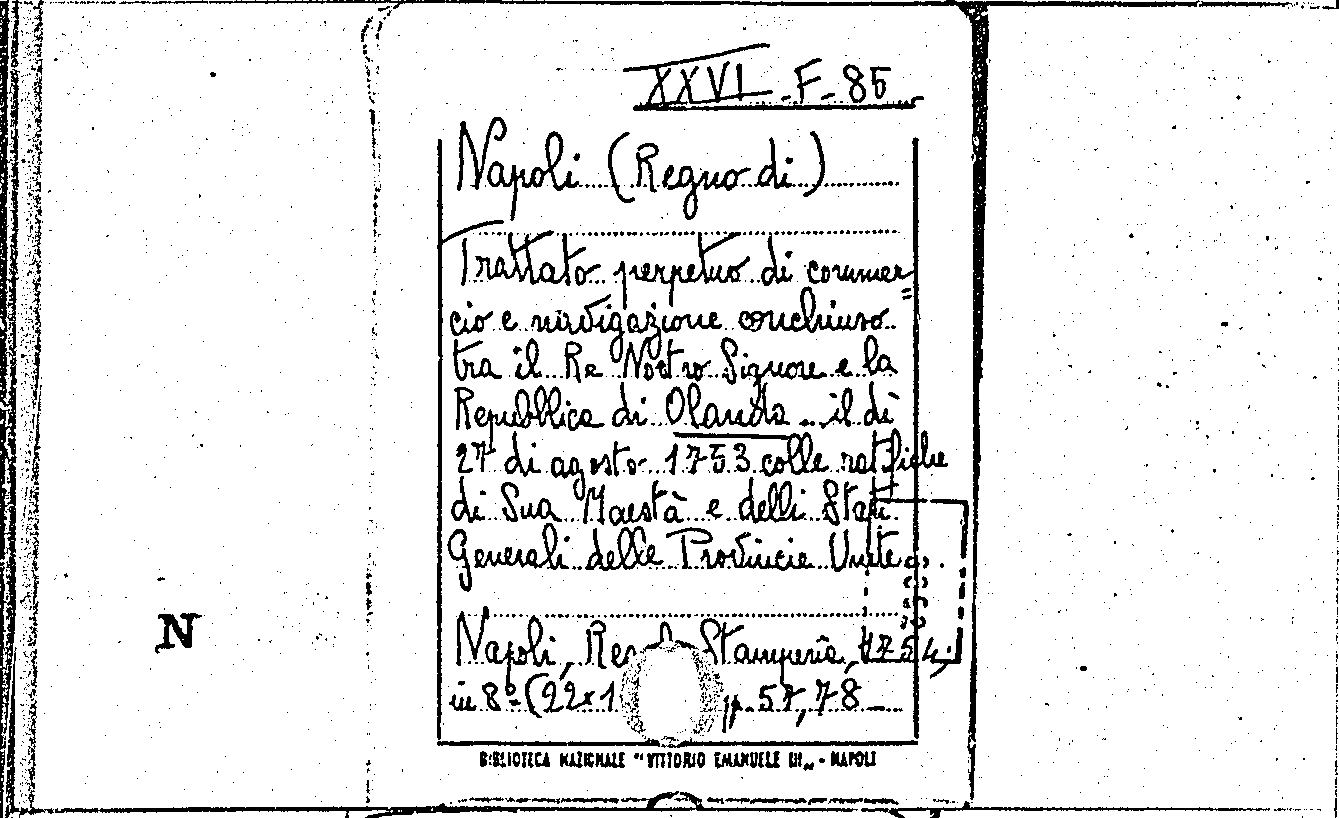 XXVI-F-85
Napoli (Regno di)
Trattato perpetuo di commer=
cio e navigazione conchiuso
tra il Re Nostro Signore e la
Repubblica di Olanda .. il dì
27 di agosto 1753 colle ratifiche
di Sua Maestà e delli Stati
Generali delle Provincie Unite.
N
Napoli, Stamperia, 1754,
in 8º (22x1 pp. 57, 78
BIBLIOTECA NAZIONALE "VITTORIO EMANUELE III" - NAPOLI